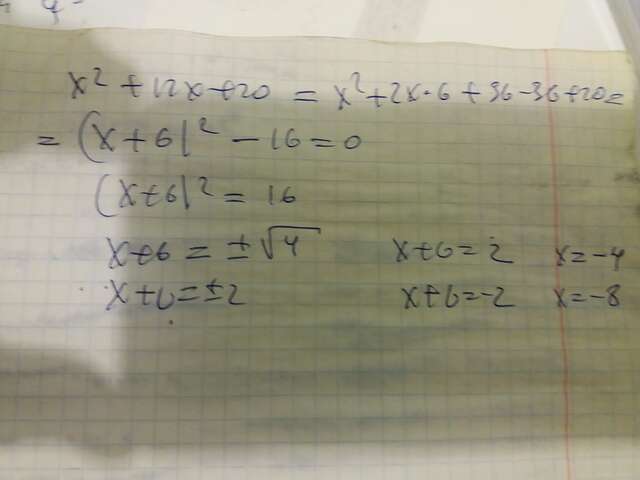 x² + 12x + 20 = x² + 2x·6 + 36 - 36 + 20 =
= (x + 6)² - 16 = 0
(x + 6)² = 16
x + 6 = ± √4 x + 6 = 2 x = -4
x + 6 = ± 2 x + 6 = -2 x = -8